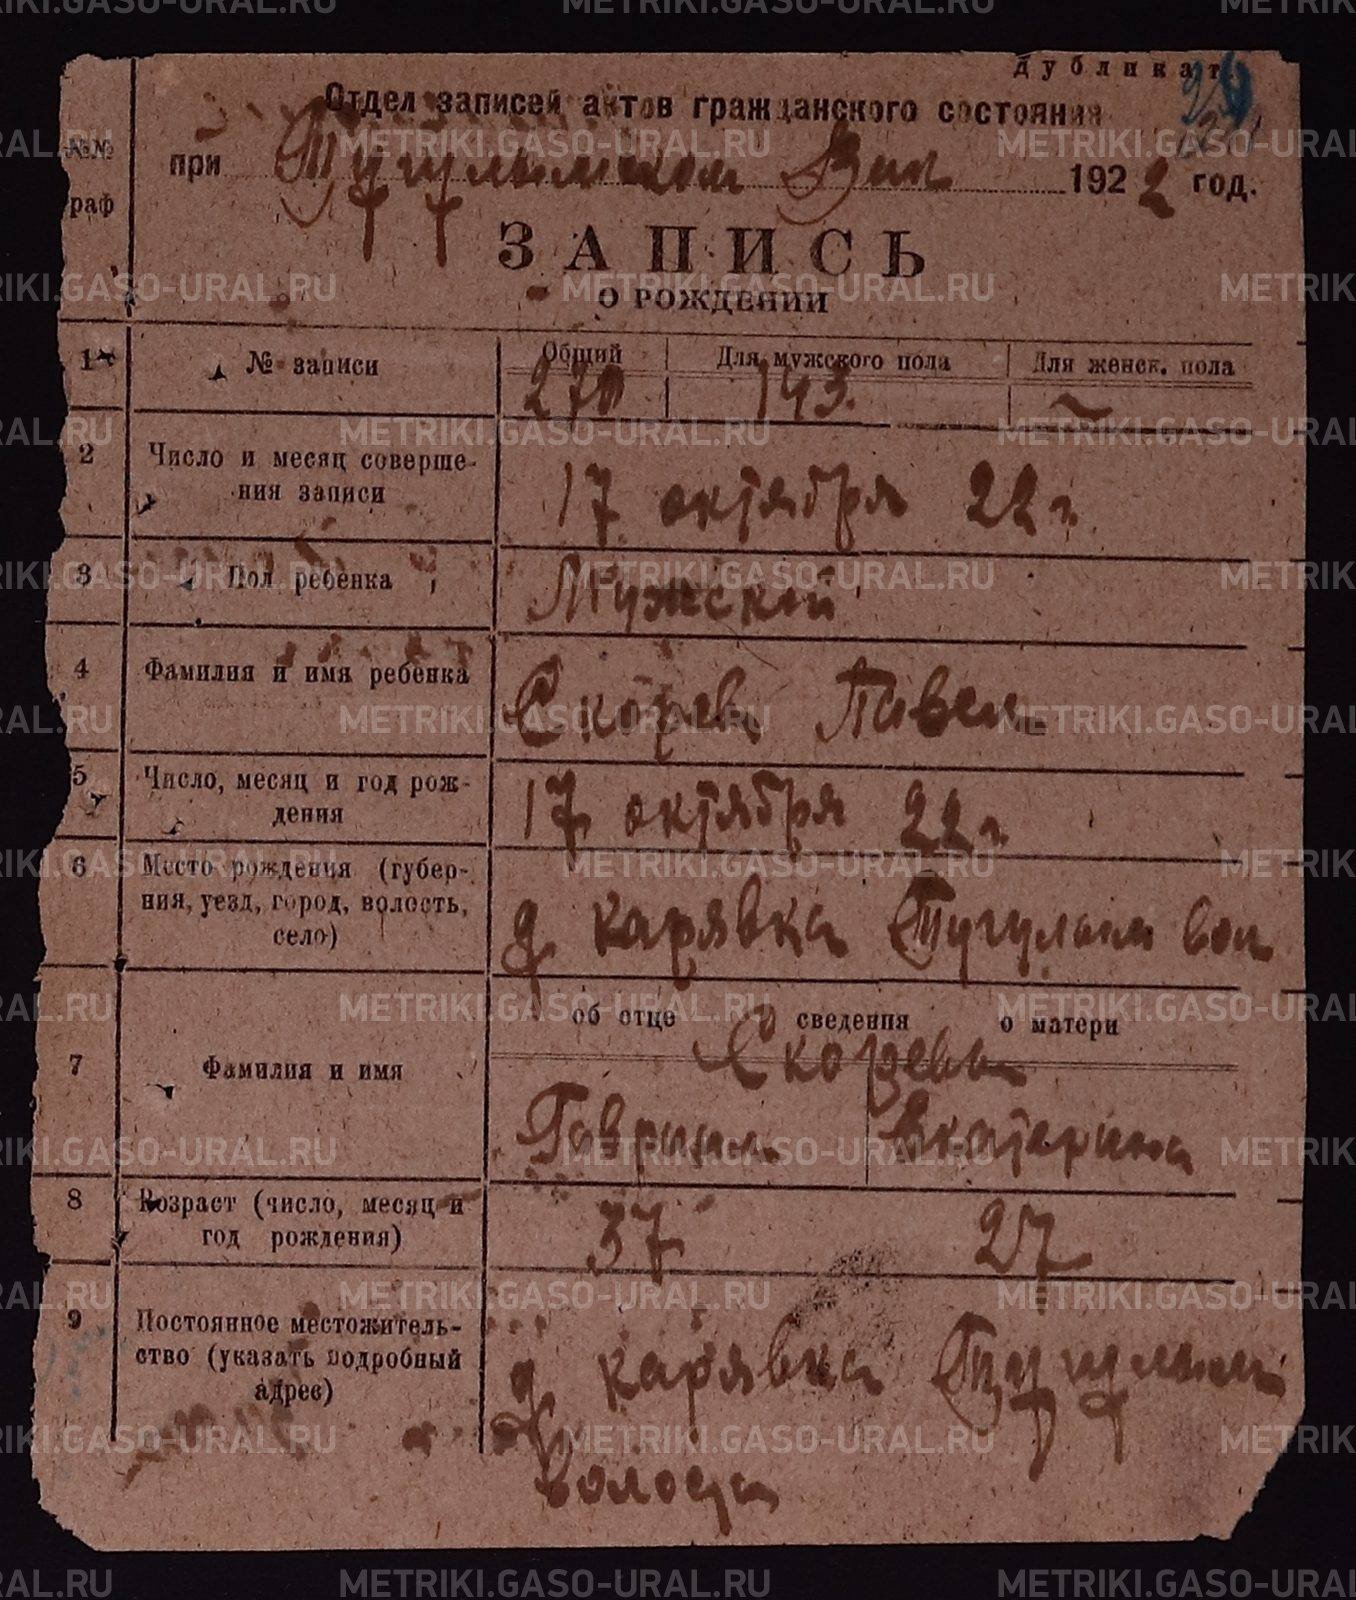 дубликат
29
Отдел записей актов гражданского состояния
при Тугулымском Вик 1922 год.
№№
раф
ЗАПИСЬ
О РОЖДЕНИИ
1 № записи Общий Для мужского пола Для женск. пола
270 143. ~
2 Число и месяц соверше-
ния записи
17 октября 22 г.
3 Пол ребенка Мужской
4 Фамилия и имя ребенка Скорев Павел
5 Число, месяц и год рож-
дения
17 октября 22 г
6 Место рождения (губер-
ния, уезд, город, волость,
село)
д карявка Тугулым вол
об отце сведения о матери
7 Фамилия и имя
Гаврил Екатерина
8 Возраст (число, месяц и
год рождения)
37 27
9 Постоянное местожитель-
ство (указать подробный
адрес)
д карявка Тугулым
METRIKI.GASO-URAL.RU